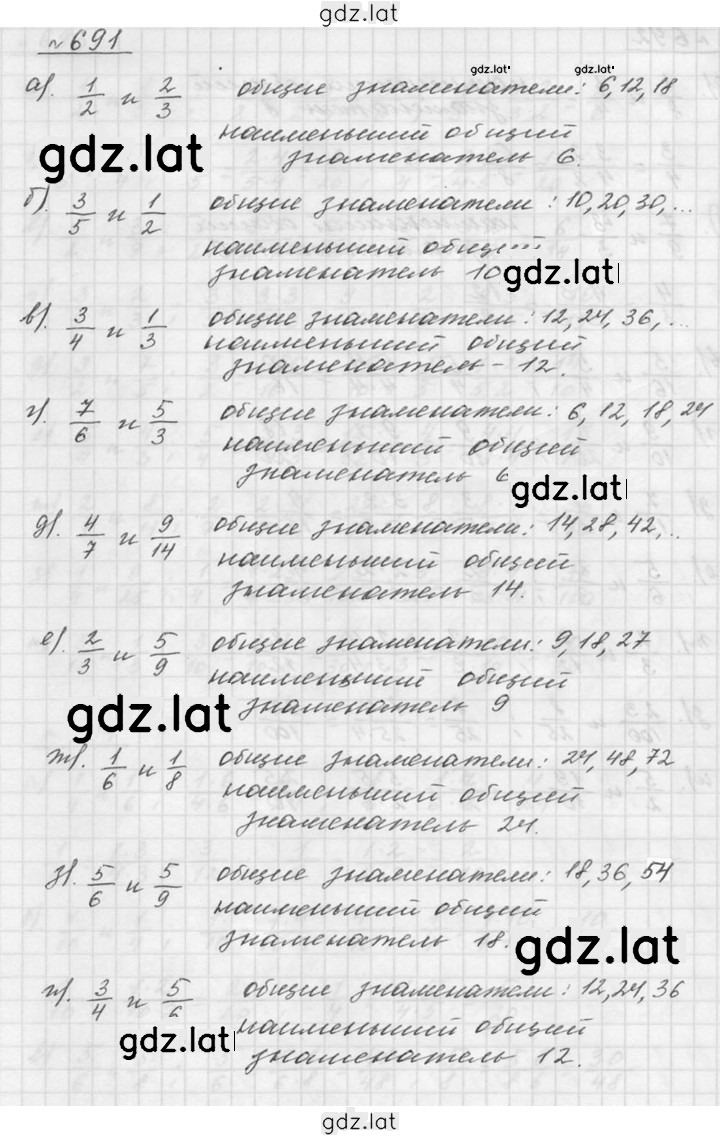 gdz.lat
№691
gdz.lat
а). 1/2 и 2/3 общие знаменатели: 6,12,18
наименьший общий
знаменатель 6.
gdz.lat
б). 3/5 и 1/2 общие знаменатели: 10,20,30,...
наименьший общий
знаменатель 10
gdz.lat
в). 3/4 и 1/3 общие знаменатели: 12,24,36,...
наименьший общий
знаменатель - 12.
г). 7/6 и 5/3 общие знаменатели: 6, 12, 18, 24
наименьший общий
знаменатель 6
gdz.lat
д). 4/7 и 9/14 общие знаменатели: 14,28,42,..
наименьший общий
знаменатель 14.
е). 2/3 и 5/9 общие знаменатели: 9,18,27
наименьший общий
знаменатель 9
gdz.lat
ж). 1/6 и 1/8 общие знаменатели: 24,48,72
наименьший общий
знаменатель 24.
з). 5/6 и 5/9 общие знаменатели: 18,36,54
наименьший общий
знаменатель 18.
gdz.lat
и). 3/4 и 5/6 общие знаменатели: 12,24,36
наименьший общий
знаменатель 12.
gdz.lat
gdz.lat